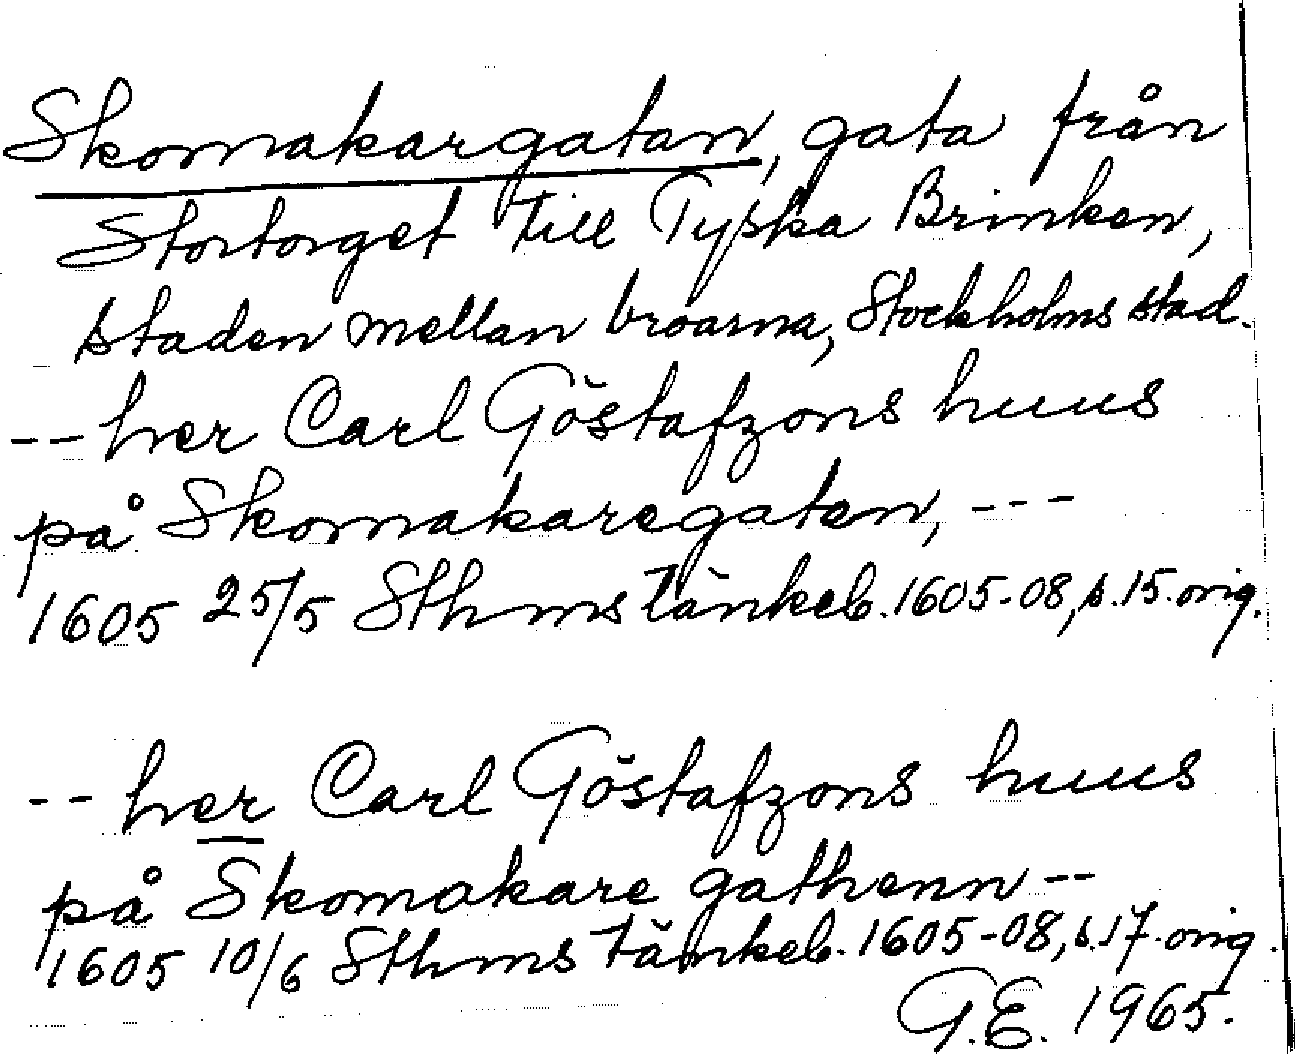 Skomakargatan, gata från
Stortorget till Tyska Brinken,
staden mellan broarna, Stockholms stad.
-- her Carl Göstafzons huus
på Skomakaregatan, ---
1605 25/5 Sthms tänkeb. 1605-08, s. 15. orig.
-- her Carl Göstafzons huus
på Skomakare gathenn --
1605 10/6 Sthms tänkeb. 1605-08, s. 17. orig.
G.E. 1965.